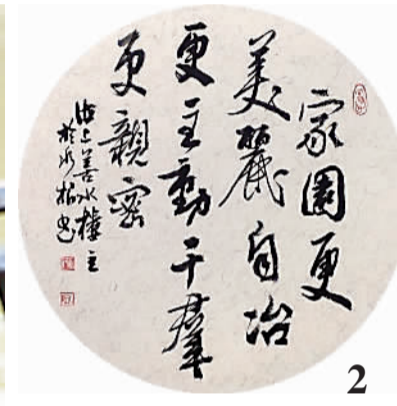 家園更
美麗自治
更主動干群
更親密
海上善水樓主
2